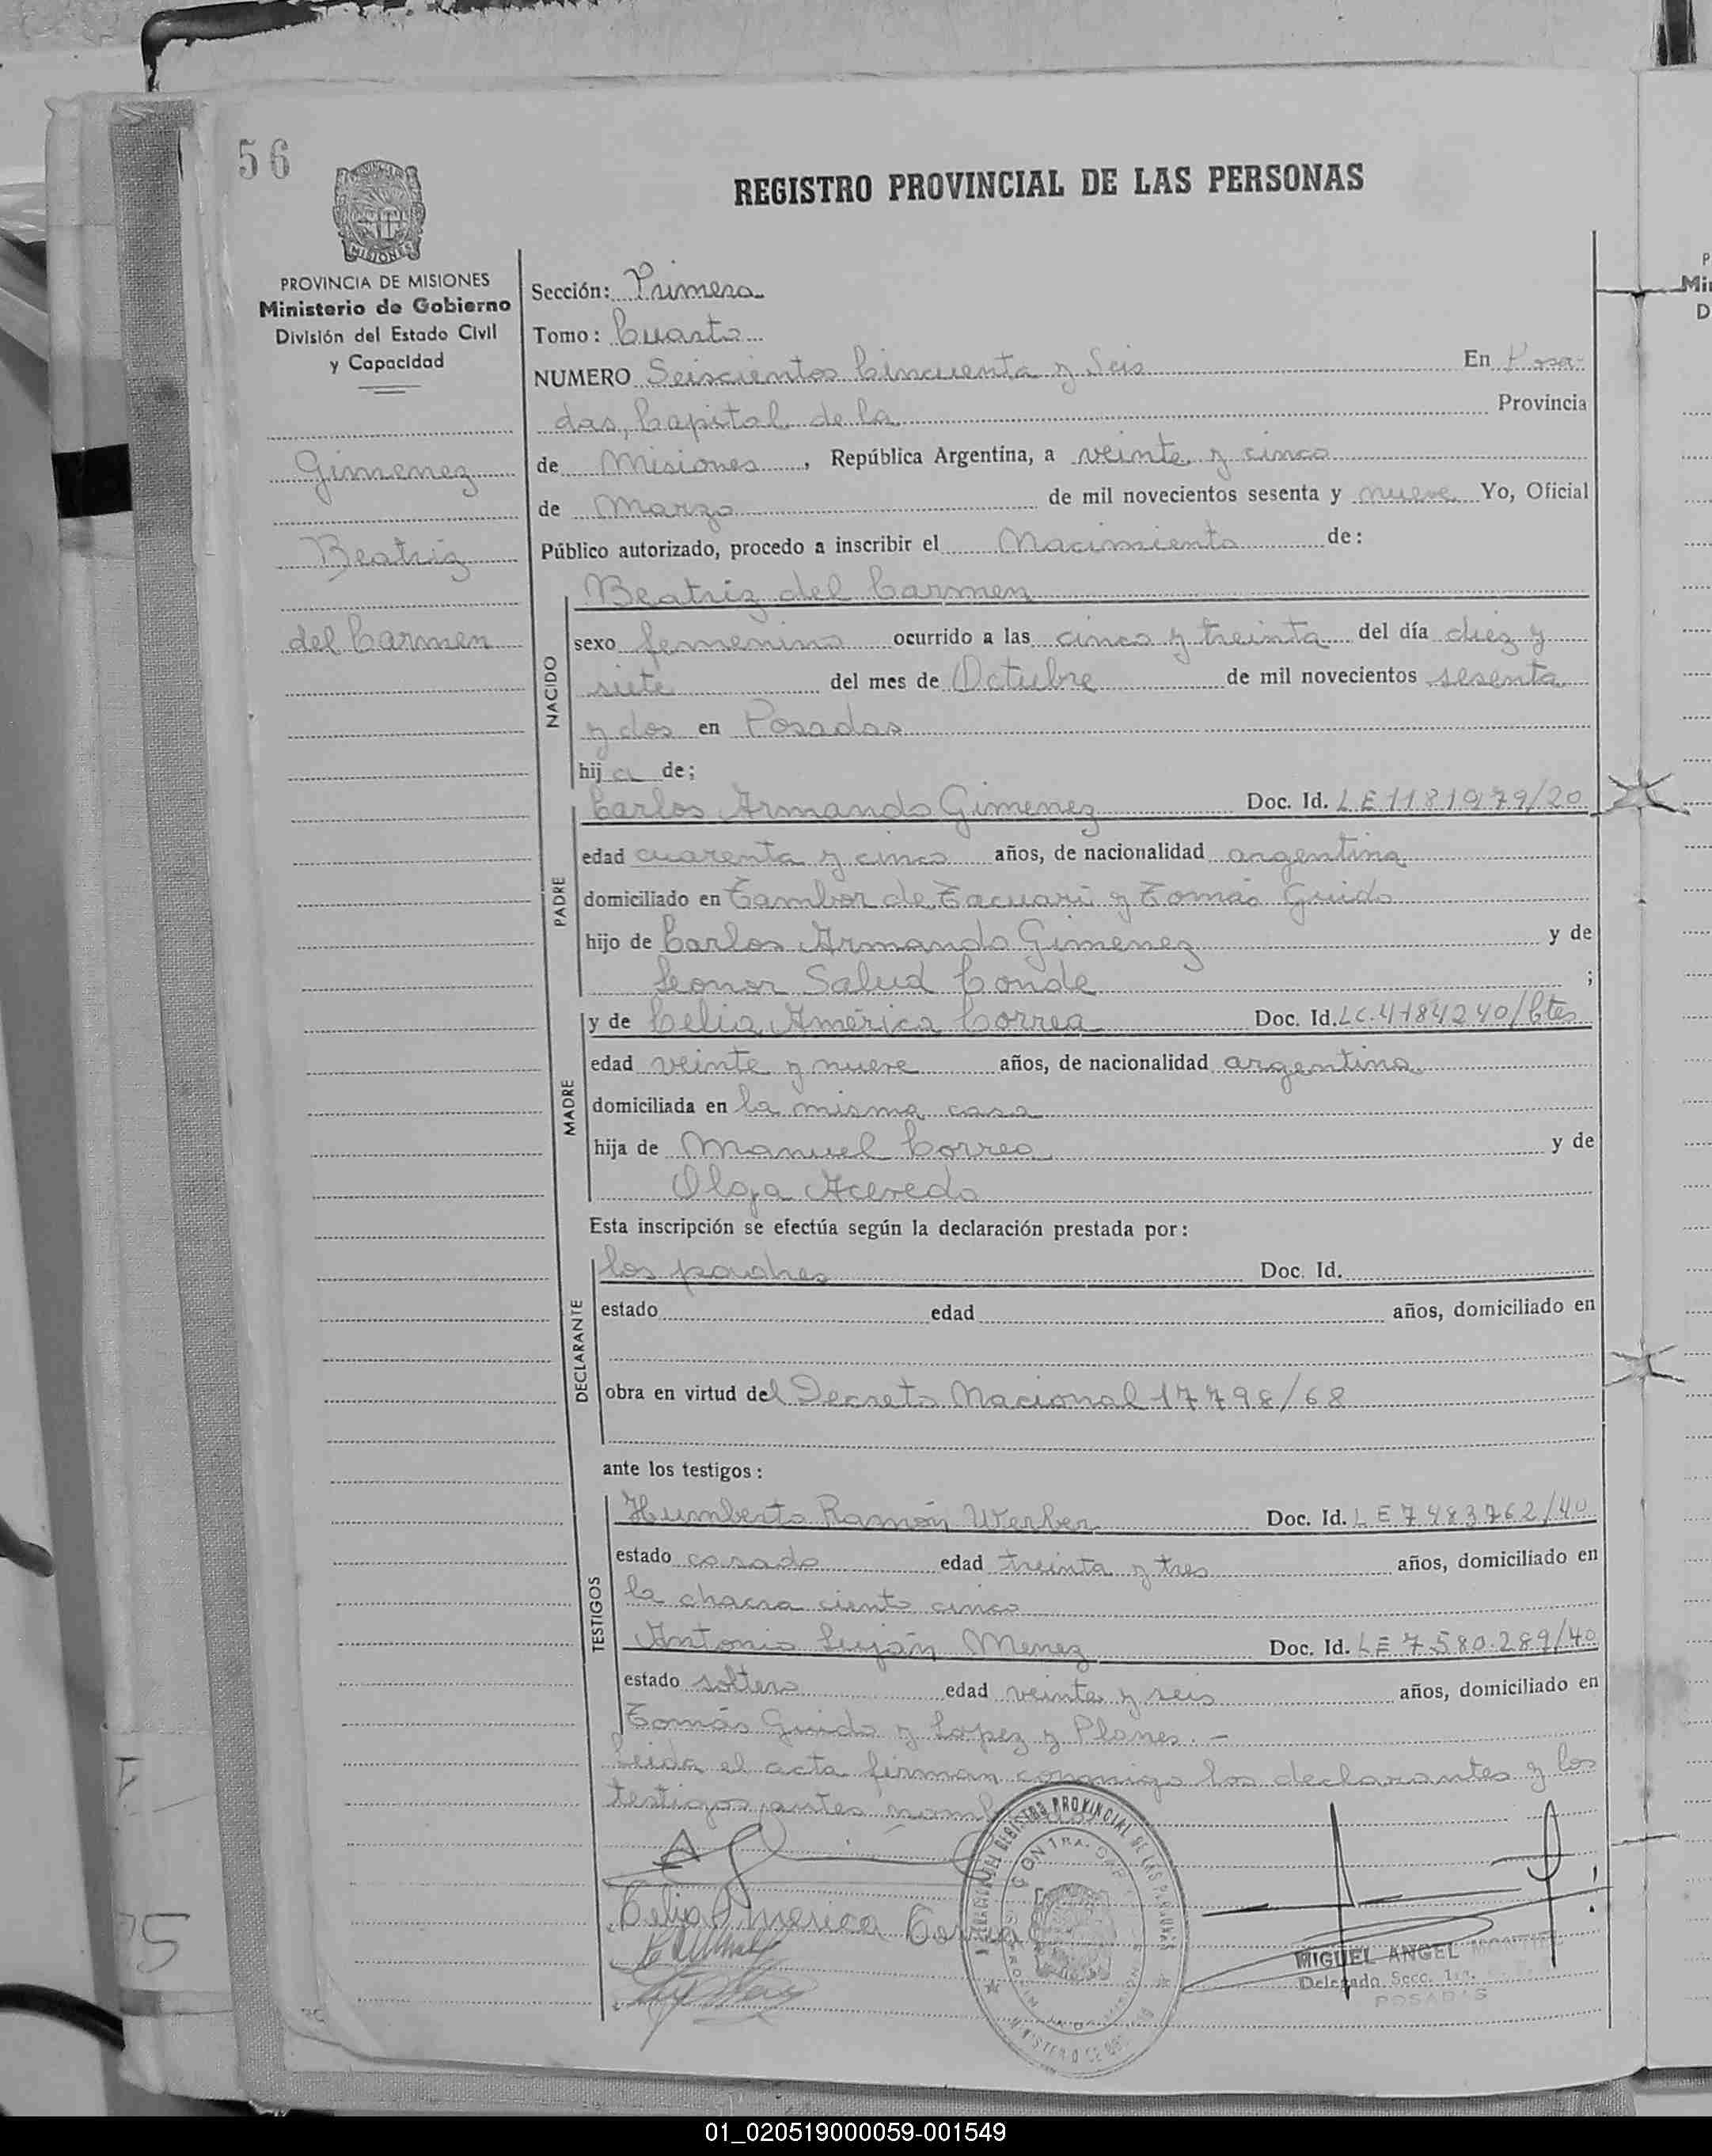 56
REGISTRO PROVINCIAL DE LAS PERSONAS
PROVINCIA DE MISIONES
Ministerio de Gobierno
División del Estado Civil
y Capacidad
Gimenez
Beatriz
del Carmen
Sección: Primera
Tomo: Cuarto
NUMERO Seiscientos Cincuenta y Seis En Posa-
das, Capital de la Provincia
de Misiones, República Argentina, a veinte y cinco
de Marzo de mil novecientos sesenta y nueve Yo, Oficial
Público autorizado, procedo a inscribir el Nacimiento de:
NACIDO
Beatriz del Carmen
sexo femenino ocurrido a las cinco y treinta del día diez y
siete del mes de Octubre de mil novecientos sesenta
y dos en Posadas
hija de;
PADRE
Carlos Armando Gimenez Doc. Id. LE 1181979/20
edad cuarenta y cinco años, de nacionalidad argentina
domiciliado en Tambor de Tacuarí y Tomás Guido
hijo de Carlos Armando Gimenez y de
Leonor Salud Conde ;
MADRE
y de Celia América Correa Doc. Id. LC.4184240/Ctes
edad veinte y nueve años, de nacionalidad argentina
domiciliada en la misma casa
hija de Manuel Correa y de
Olga Acevedo
Esta inscripción se efectúa según la declaración prestada por:
DECLARANTE
los padres Doc. Id.
estado edad años, domiciliado en
obra en virtud del Decreto Nacional 17798/68
ante los testigos:
TESTIGOS
Humberto Ramón Werber Doc. Id. LE 7483762/40
estado casado edad treinta y tres años, domiciliado en
la chacra ciento cinco
Antonio Luján Menez Doc. Id. LE 7.580.289/40
estado soltero edad veinte y seis años, domiciliado en
Tomás Guido y Lopez y Planes. -
Leida el acta firman conmigo los declarantes y los
testigos antes
Celia America Correa
MIGUEL ANGEL
Delegado Secc. 1ra.
POSADAS
01_020519000059-001549